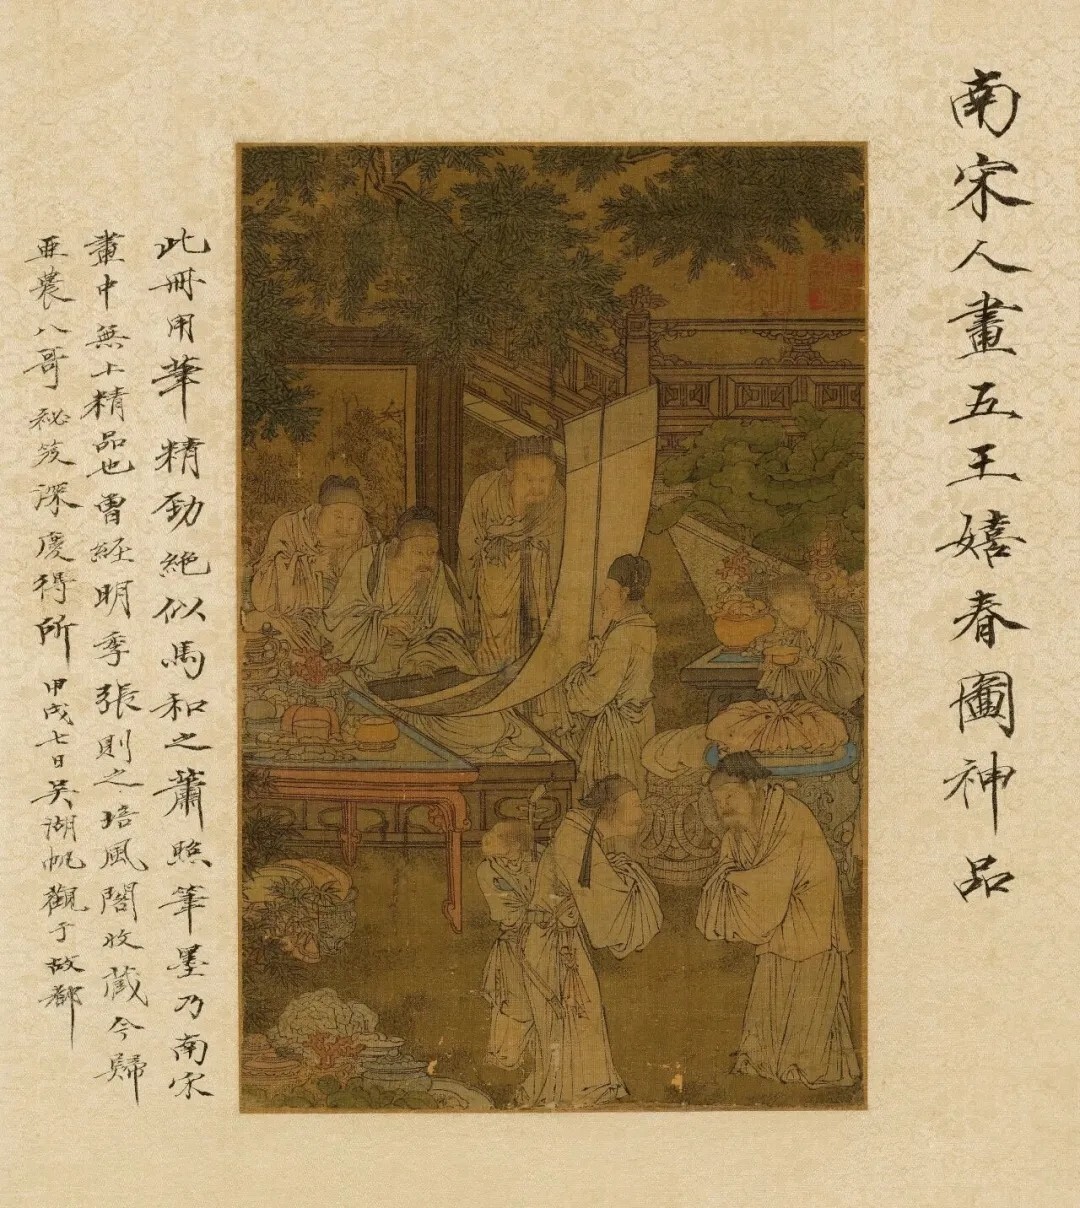 南宋人畫五王嬉春圖神品
此冊用筆精勁絶似馬和之蕭照筆墨乃南宋
畫中無上精品也曾經明季張則之培風閣收藏今歸
亜農八哥祕笈深慶得所 甲戌七日吳湖帆觀于故都